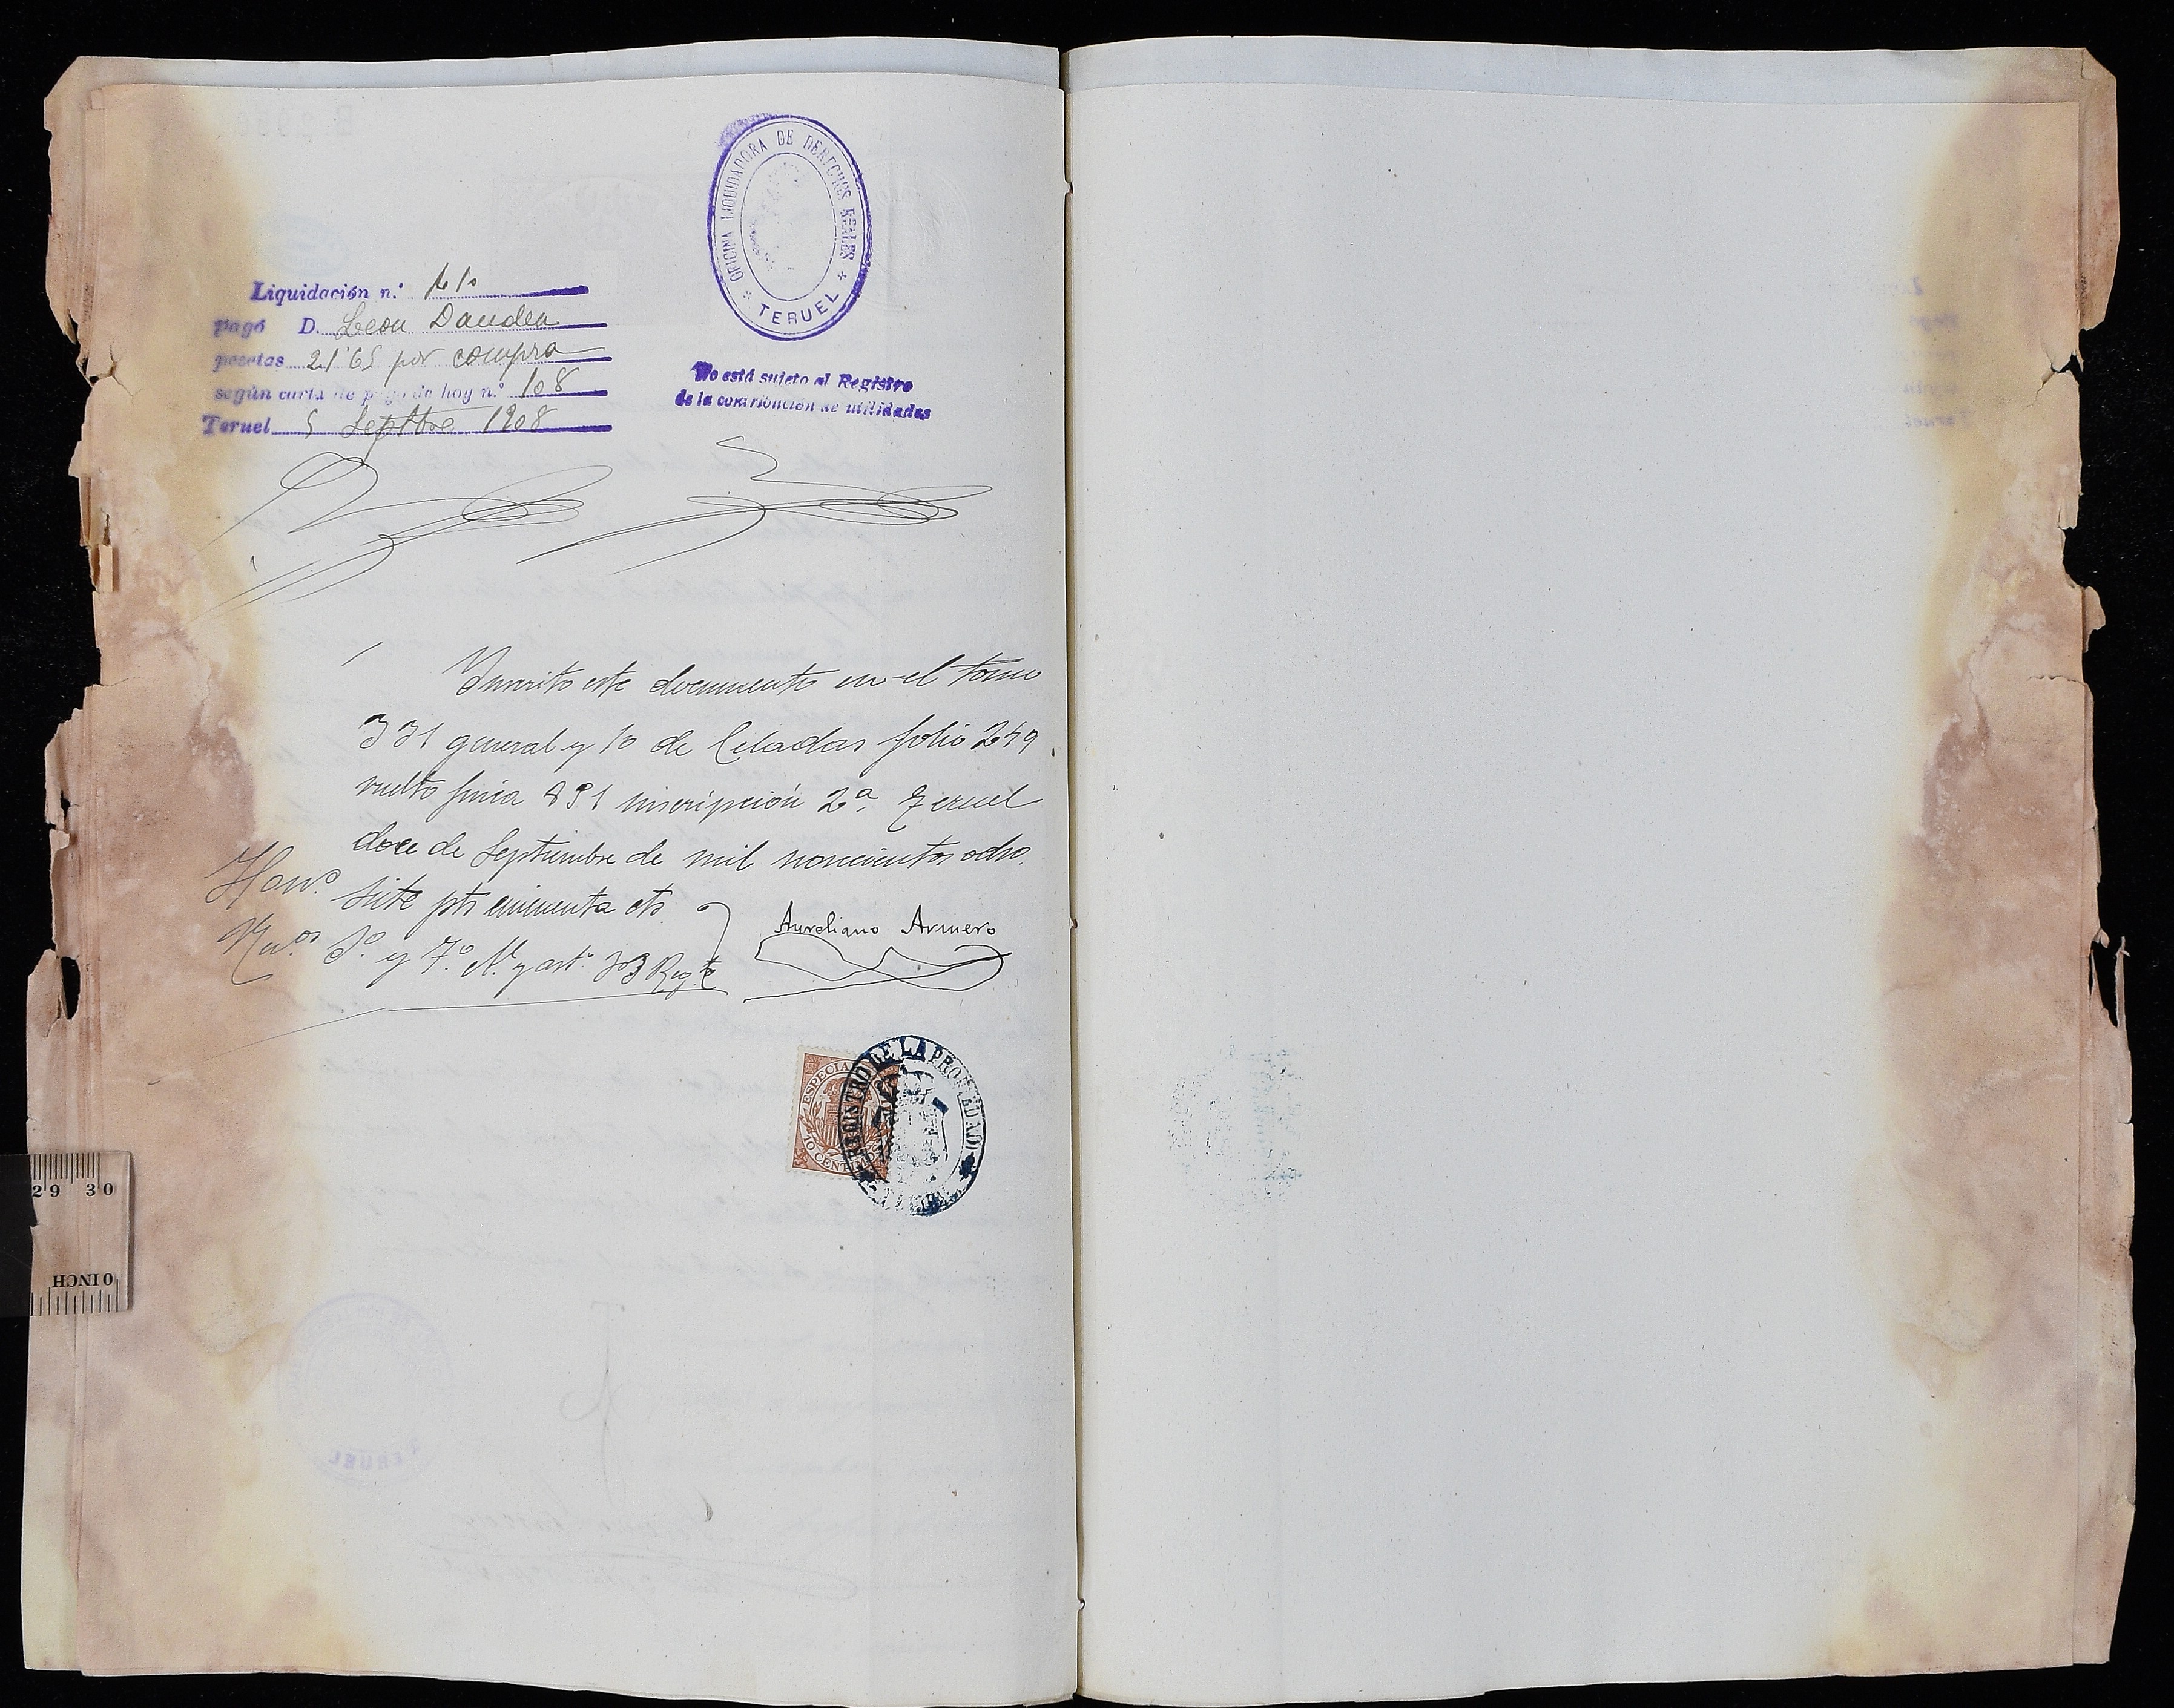 OFICINA LIQUIDADORA DE DERECHOS REALES
TERUEL
Liquidación n.º 610
pagó D. Leon Dauden
pesetas 21'65 por compra
según carta de pago de hoy n.º 108
Teruel 5 Septbre 1908
No está sujeto al Registro
de la contribución de utilidades
Inscrito este documento en el tomo
331 general y 10 de Celadas folio 249
vuelto finca 891 inscripción 2ª Teruel
doce de Septiembre de mil novecientos ocho.
Hon.º siete pts cincuenta cts.
Nu.os 5.º y 7.º Al. y art.º 303 Reg.to
Aureliano Armero
ESPECIAL
10 CENTIMOS
REGISTRO DE LA PROPIEDAD
TERUEL
29 30
0 INCH